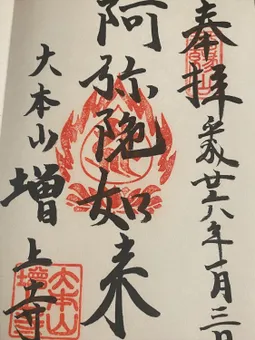 奉拝
平成廿六年一月三日
阿弥陀如来
大本山
增上寺
大本山